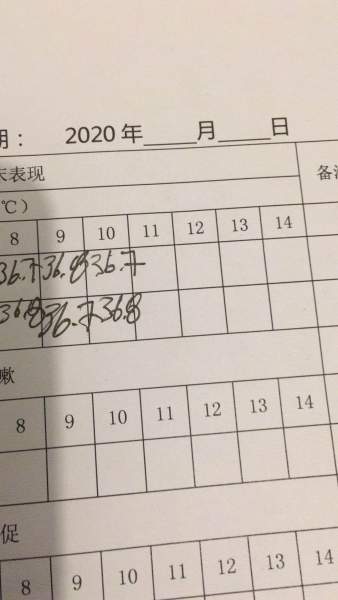 期： 2020 年_____月_____日
床表现 备注
℃）
8 9 10 11 12 13 14
36.7 36.8 36.7
36.8 36.7 36.8
嗽
8 9 10 11 12 13 14
促
8 9 10 11 12 13 14